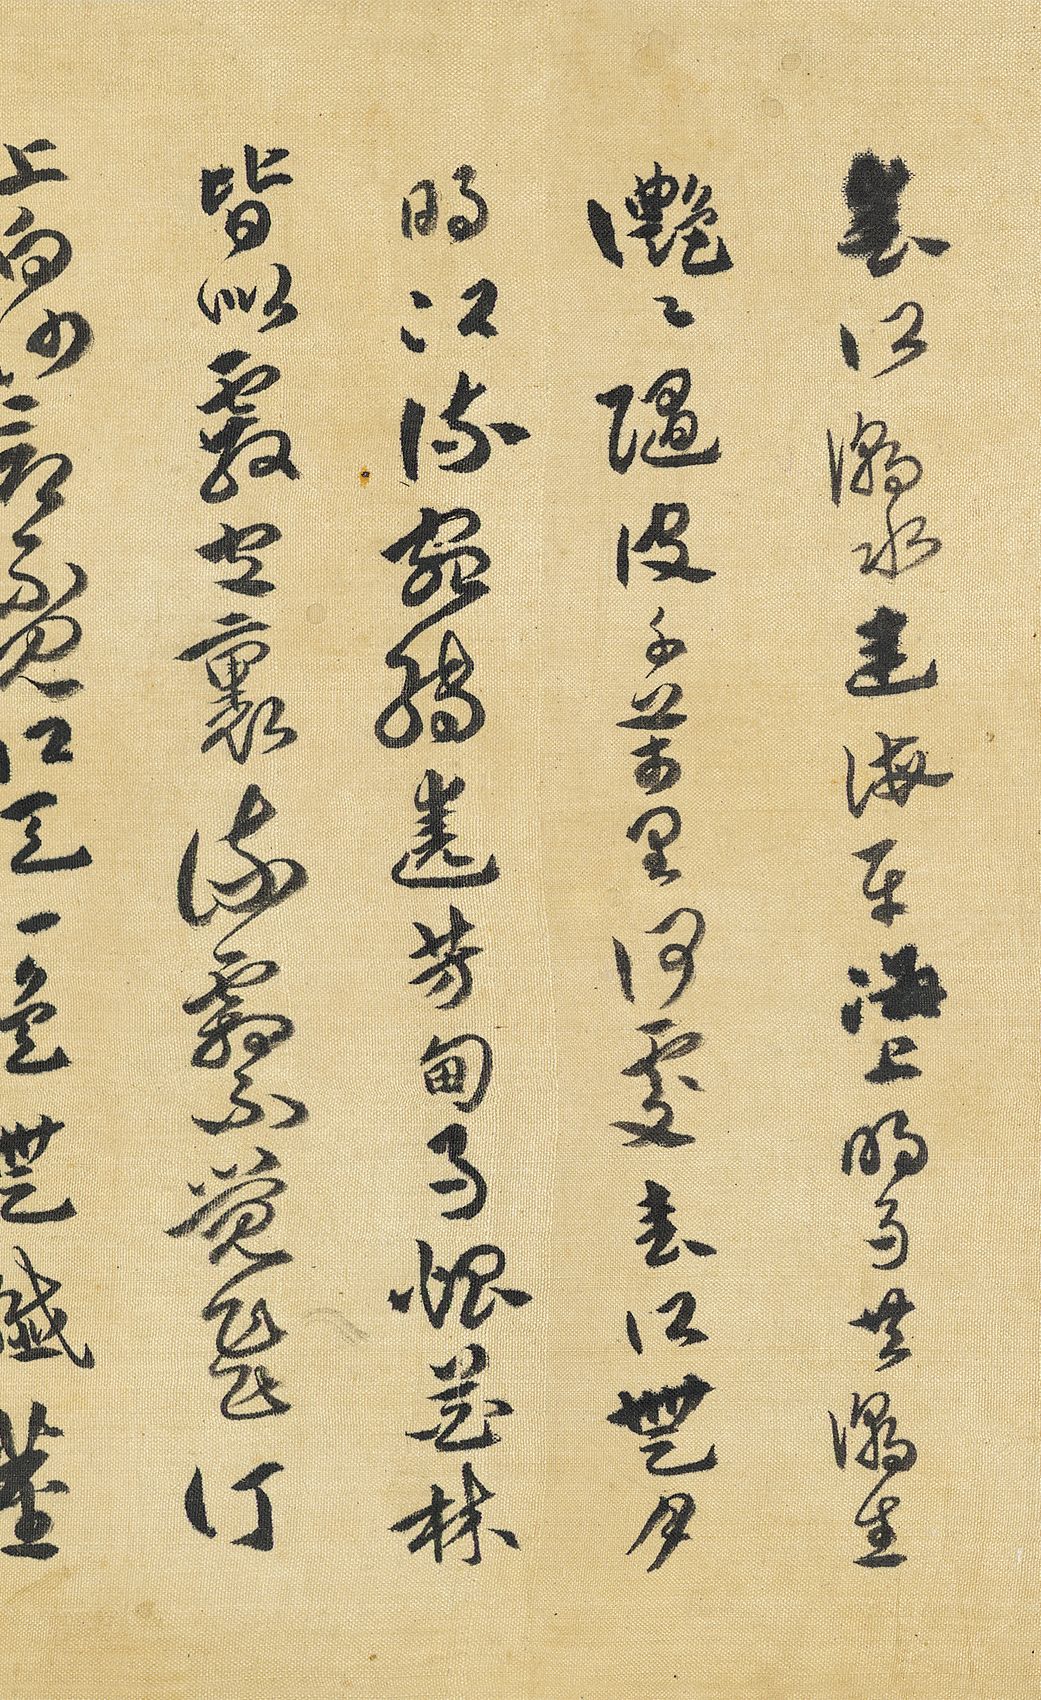 春江潮水連海平海上明月共潮生
灩〻隨波千萬里何處春江無月
明江流宛轉遶芳甸月照花林
皆似霰空裏流霜不覺飛汀
上白沙看不見江天一色無纖塵